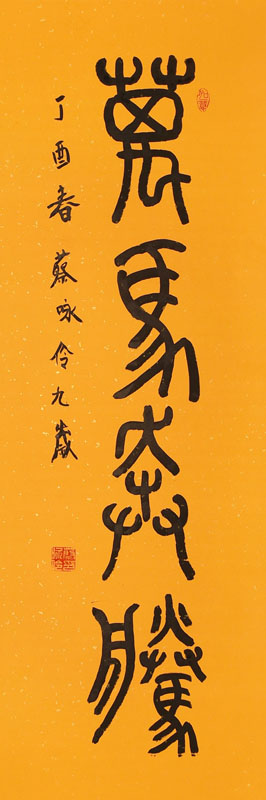 萬馬奔騰
丁酉春蔡咏伶九歲